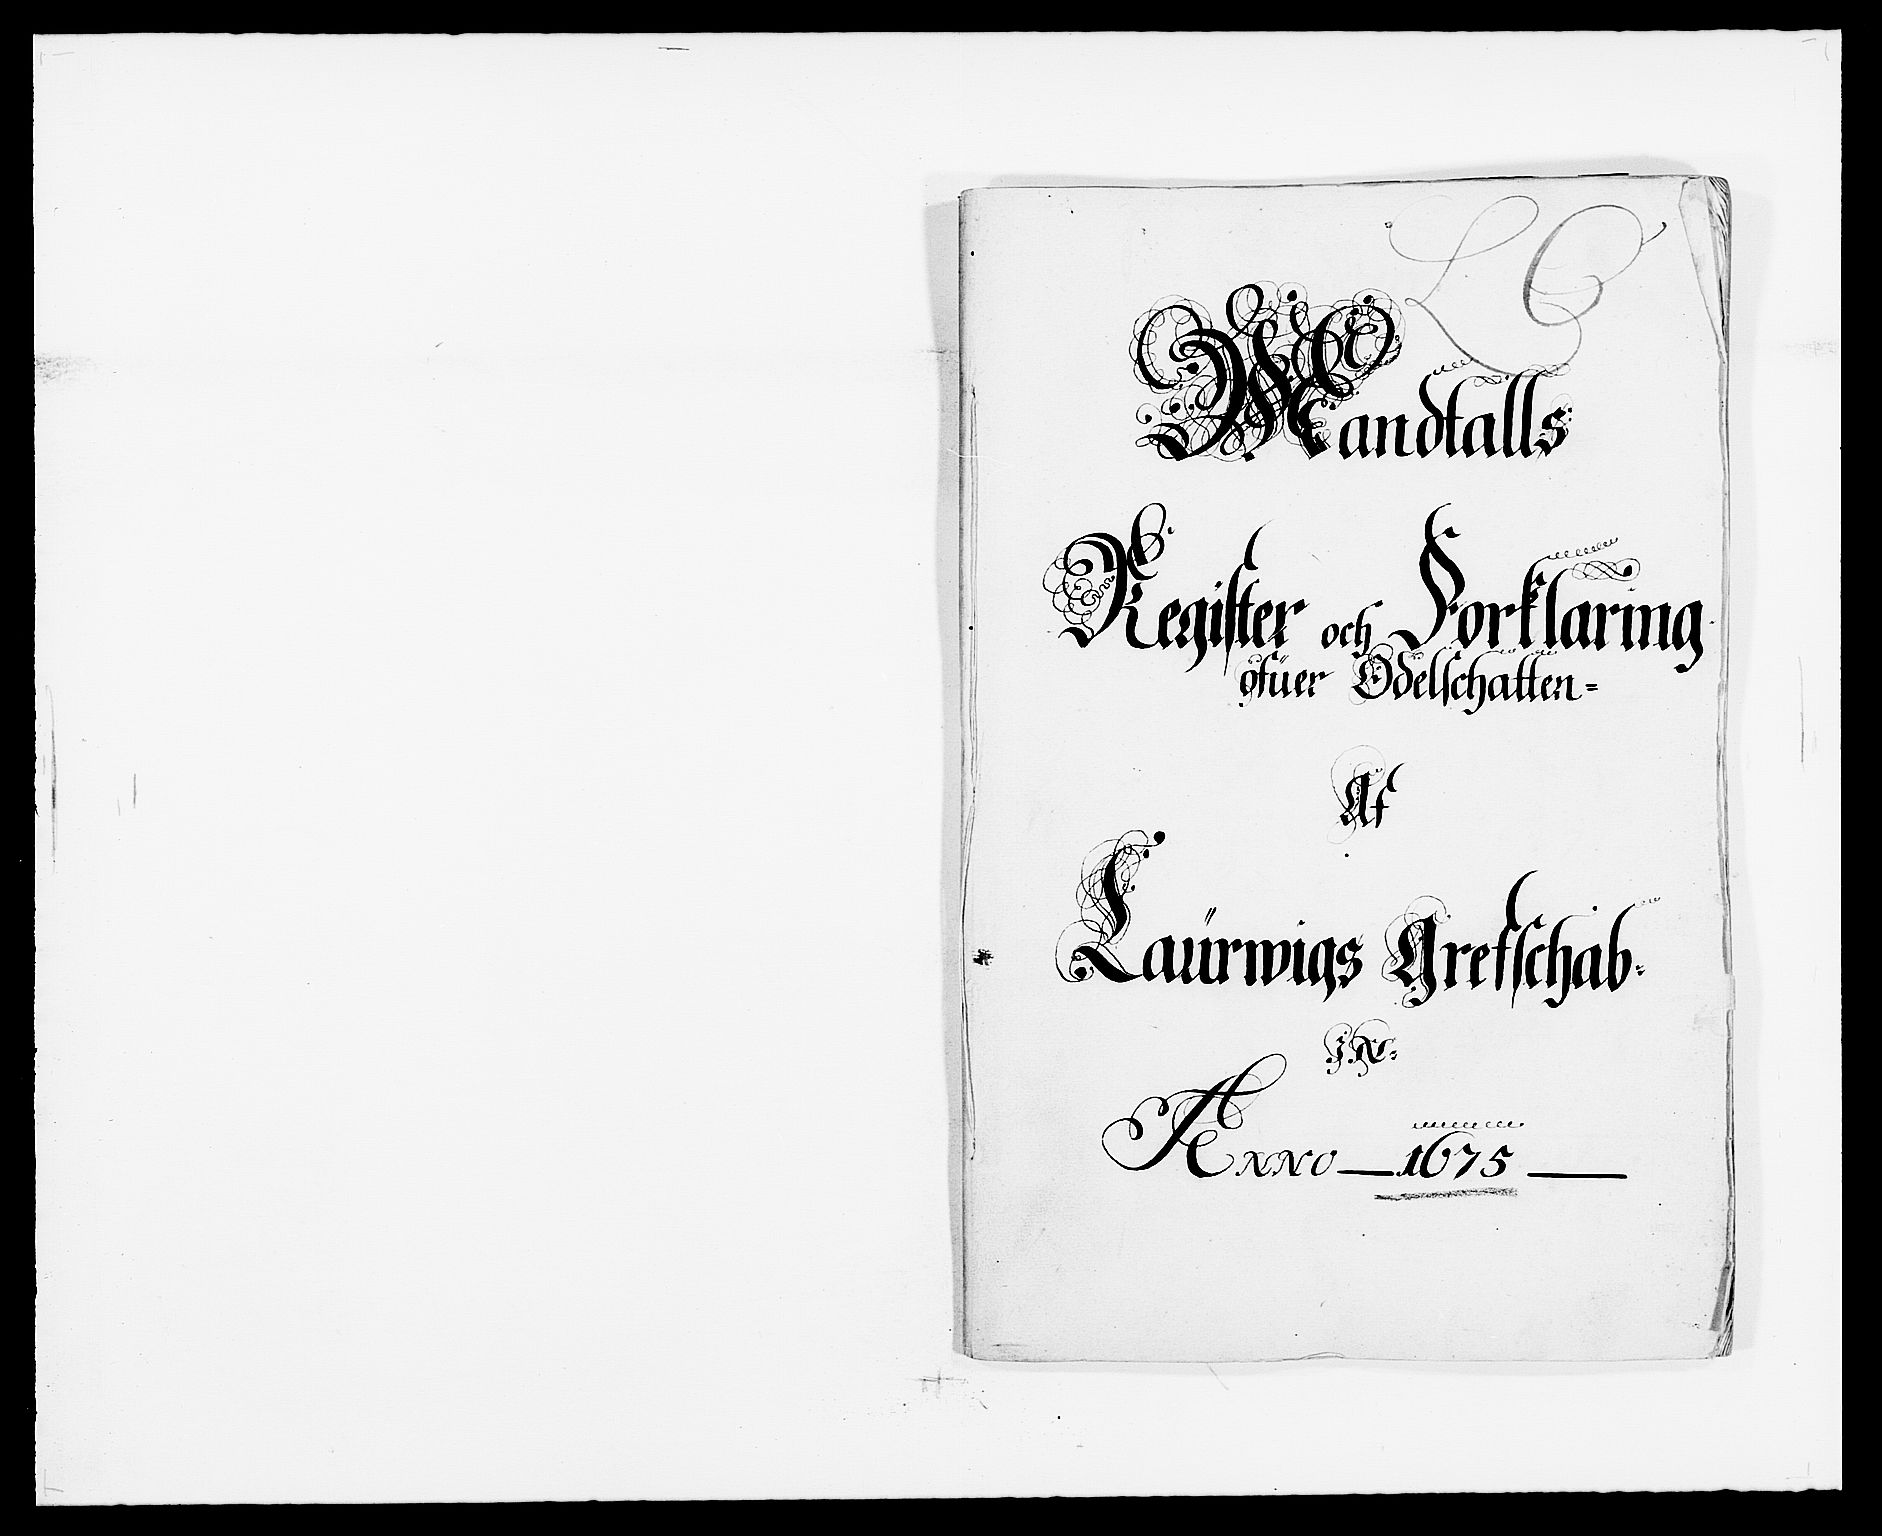 LC
Mandtalls
Register och Forklaring
ofüer Odelschatten=
Af
Laürwigs Grefschab-
Anno — 1675 —